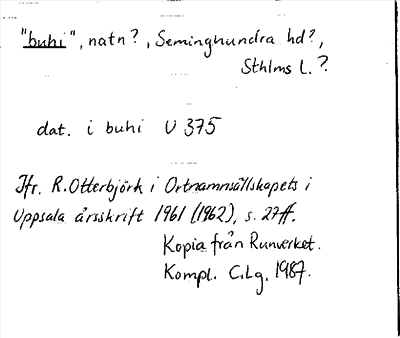 "buhi", natn?, Seminghundra hd?,
Sthlms L.?
dat. i buhi U 375
Jfr. R. Otterbjörk i Ortnamnsällskapets i
Uppsala årsskrift 1961 (1962), s. 27ff.
Kopia från Runverket.
Kompl. C.Lg. 1987.